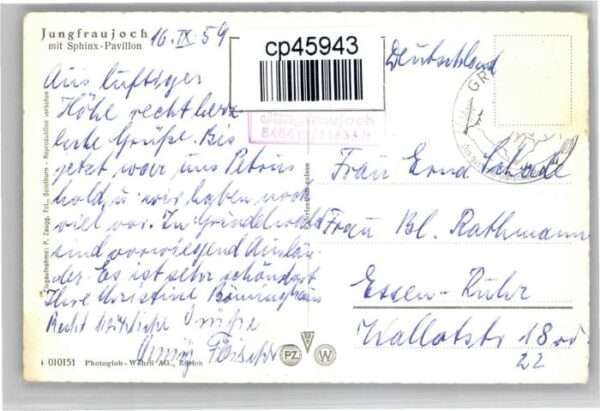 Jungfraujoch
mit Sphinx-Pavillon
16. IX. 59
cp45943
Deutschland
Aus luftiger
Höhe recht herz
liche Grüße. Bis
jetzt war uns Petrus
hold, u. wir haben noch
viel vor. In Grindelwald
sind vorwiegend Auslän
der. Es ist sehr schön dort
Ihre Christine Böninghaus
Recht herzliche Grüße
Jungfraujoch
GR
Frau Erna Schade
Frau Bl. Rathmann
Essen-Ruhr
Wallotstr 18 od.
22
PZ
W
i 010151 Photoglob-Wehrli AG., Zürich